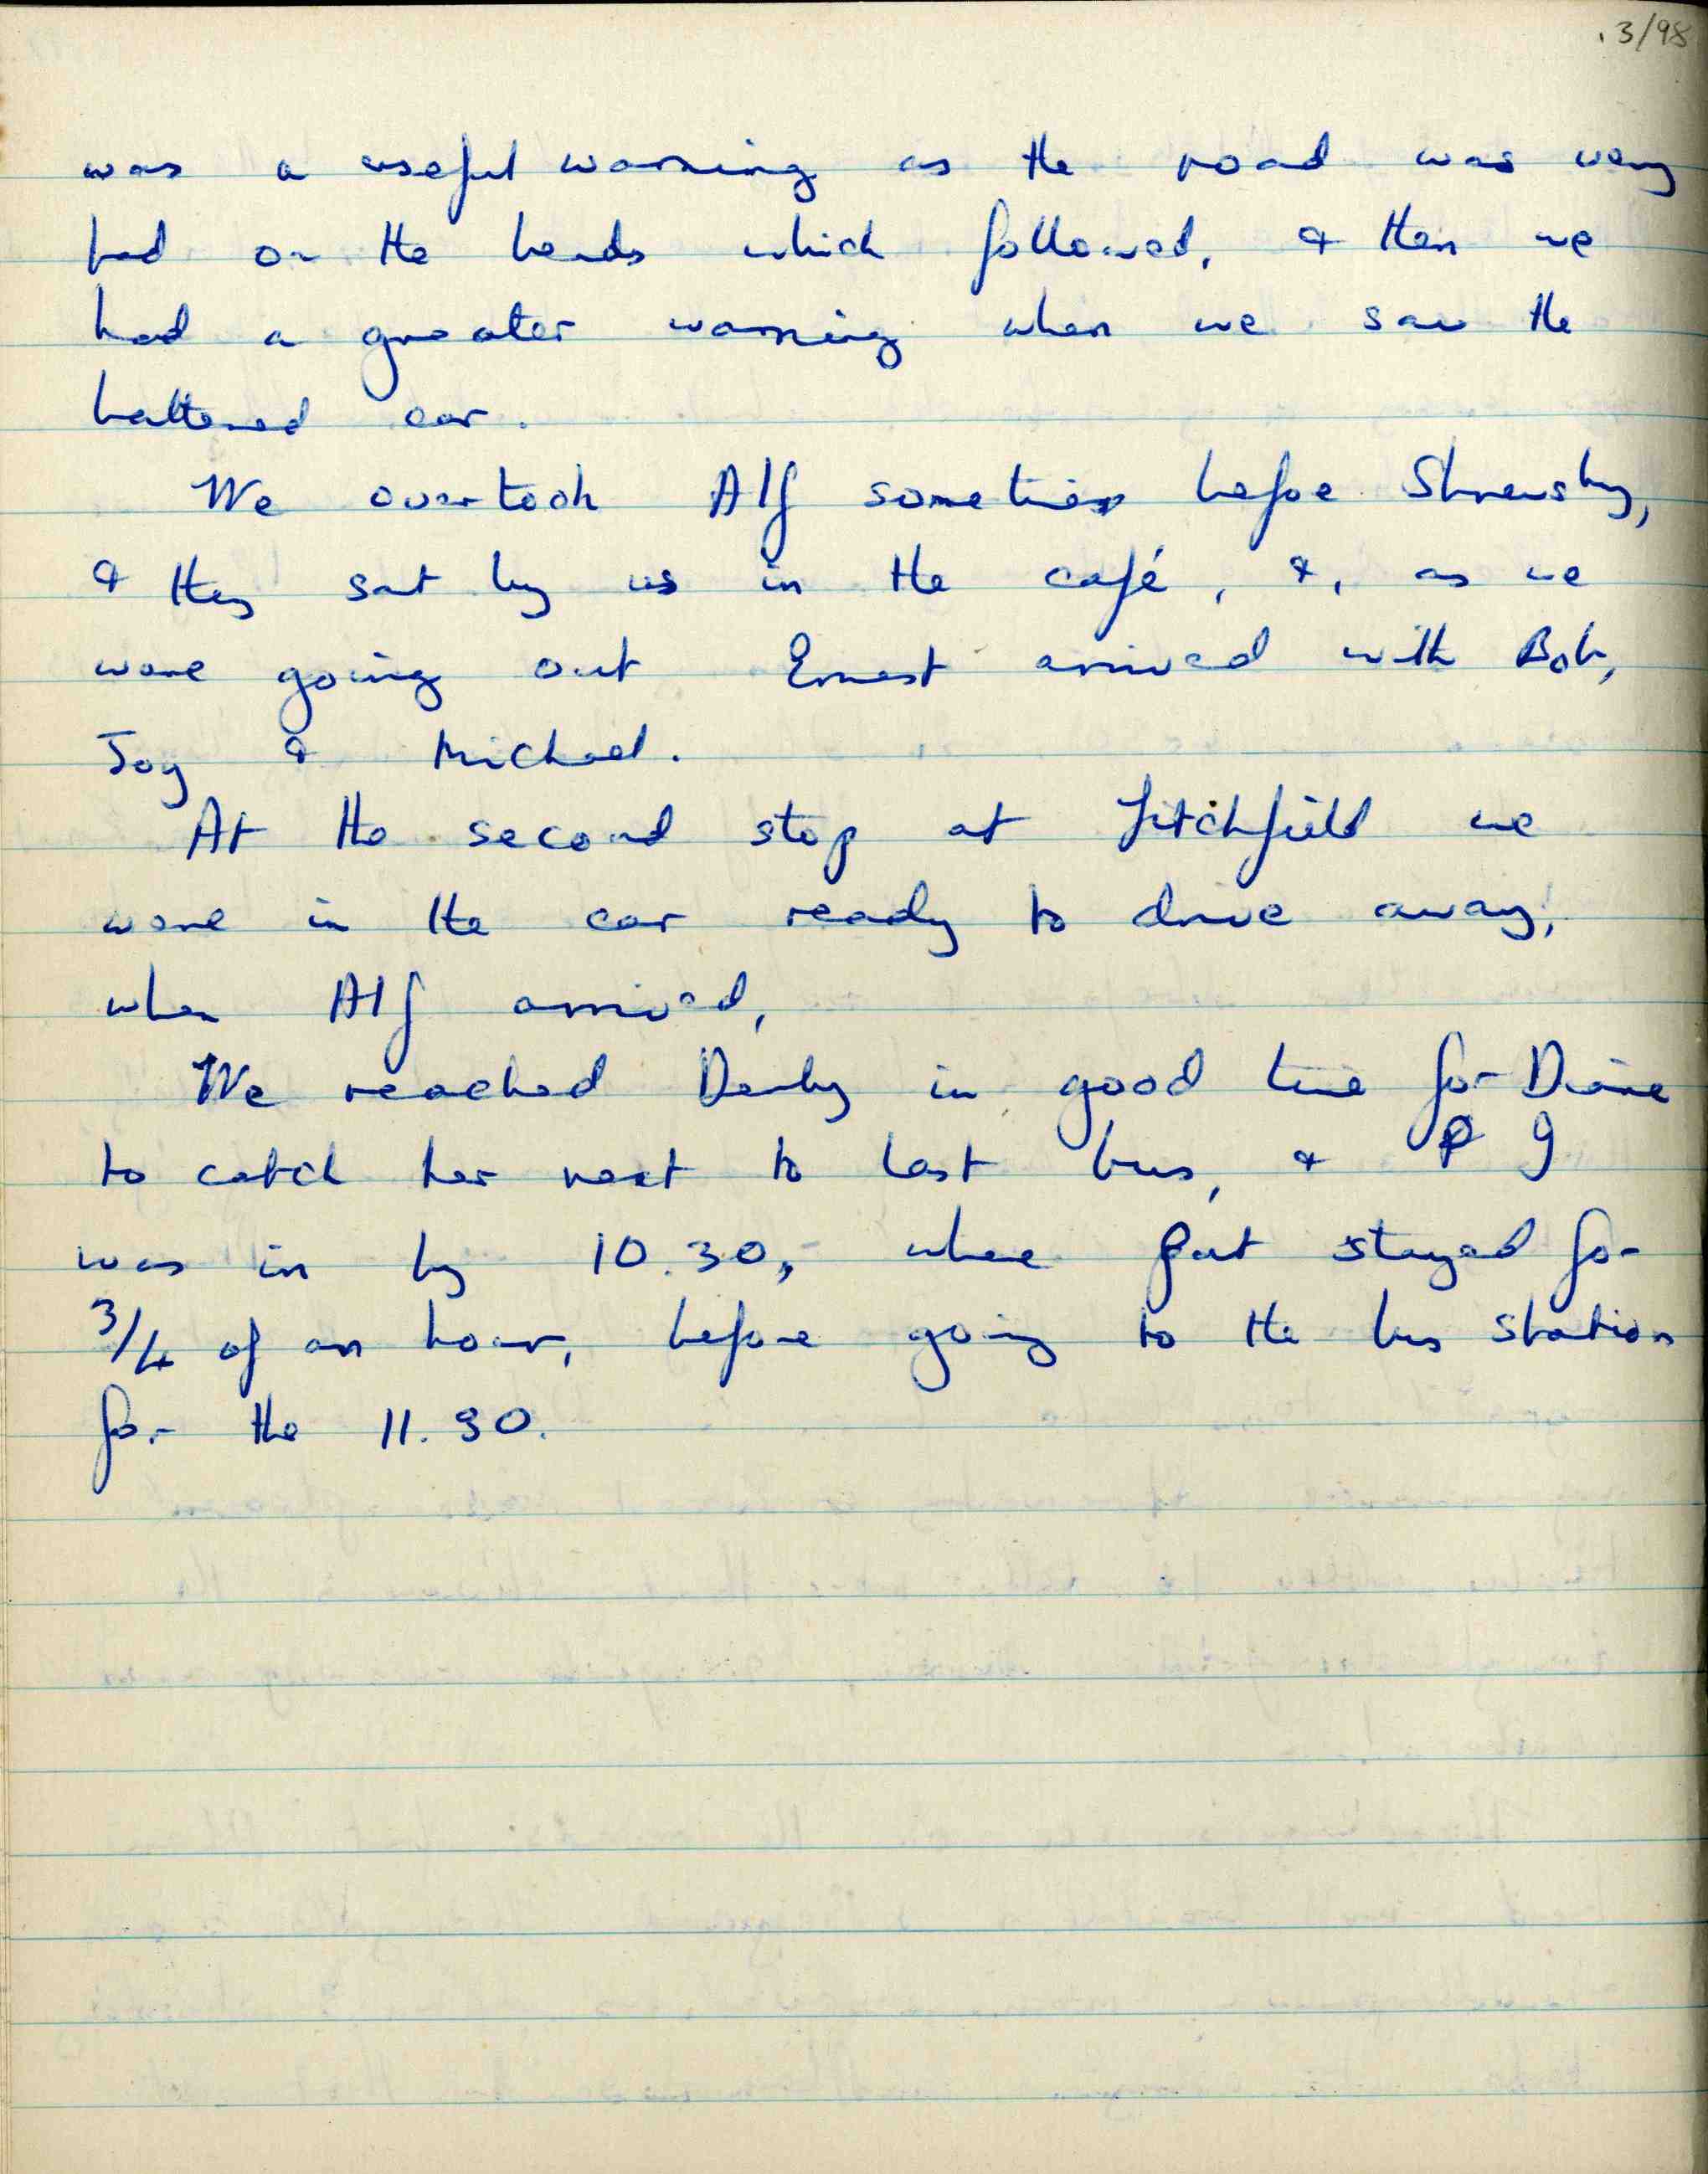 .3/98
was a useful warning as the road was very
bad on the bends which followed, & then we
had a greater warning when we saw the
battered car.
We overtook Alf sometime before Shrewsby,
& they sat by us in the café, &, as we
were going out Ernest arrived with Bob,
Joy & Michael.
At the second stop at Litchfield we
were in the car ready to drive away,
when Alf arrived,
We reached Derby in good time for Diane
to catch her next to last bus, & P J
was in by 10.30, where Pat stayed for
3/4 of an hour, before going to the bus station
for the 11.30.